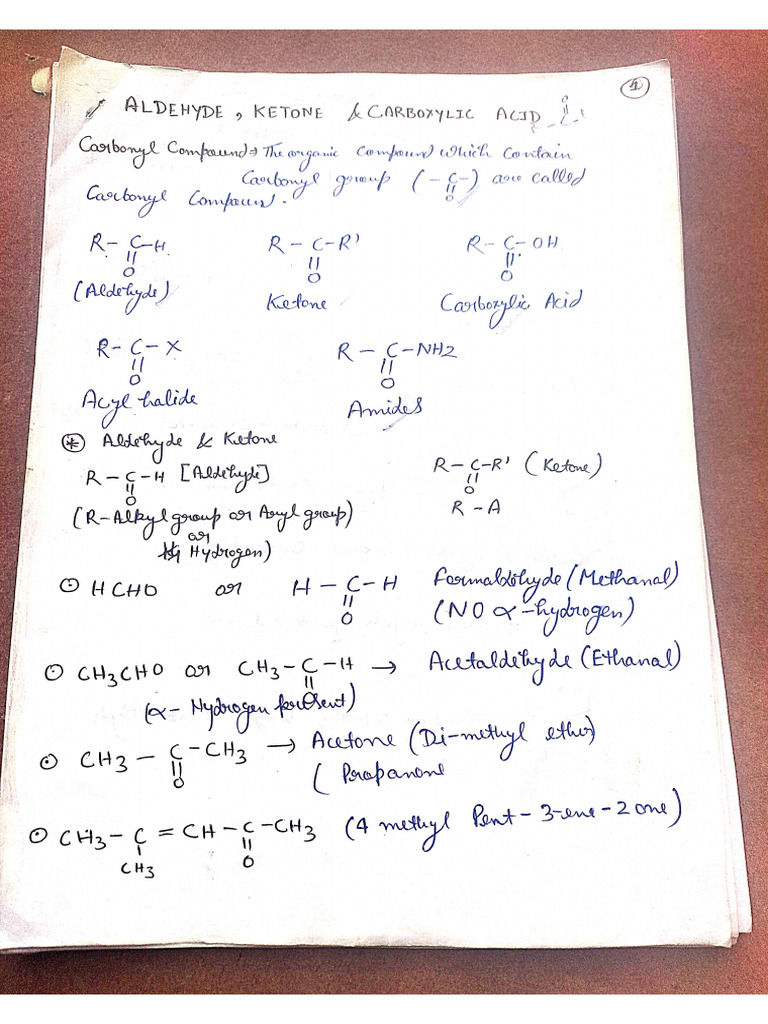 1
ALDEHYDE, KETONE & CARBOXYLIC ACID
Carbonyl Compound → The organic Compound which Contain
Carbonyl group (-C-) are called
O
Carbonyl Compoun.
R - C-H   R - C-R'   R - C - OH
O   O   O
(Aldehyde)   Ketone   Carboxylic Acid
R - C - X   R - C - NH2
O   O
Acyl halide   Amides
* Aldehyde & Ketone
R - C - H [Aldehyde]   R - C - R' (Ketone)
O   O
(R-Alkyl group or Aryl group)   R - A
or
Hydrogen)
HCHO or H - C - H Formaldehyde (Methanal)
O   (NO α-hydrogen)
CH3CHO or CH3 - C - H → Acetaldehyde (Ethanal)
O
(α- Hydrogen present)
CH3 - C - CH3 → Acetone (Di-methyl ether)
O   ( Propanone
CH3 - C = CH - C - CH3 (4 methyl Pent - 3-ene - 2 one)
CH3   O